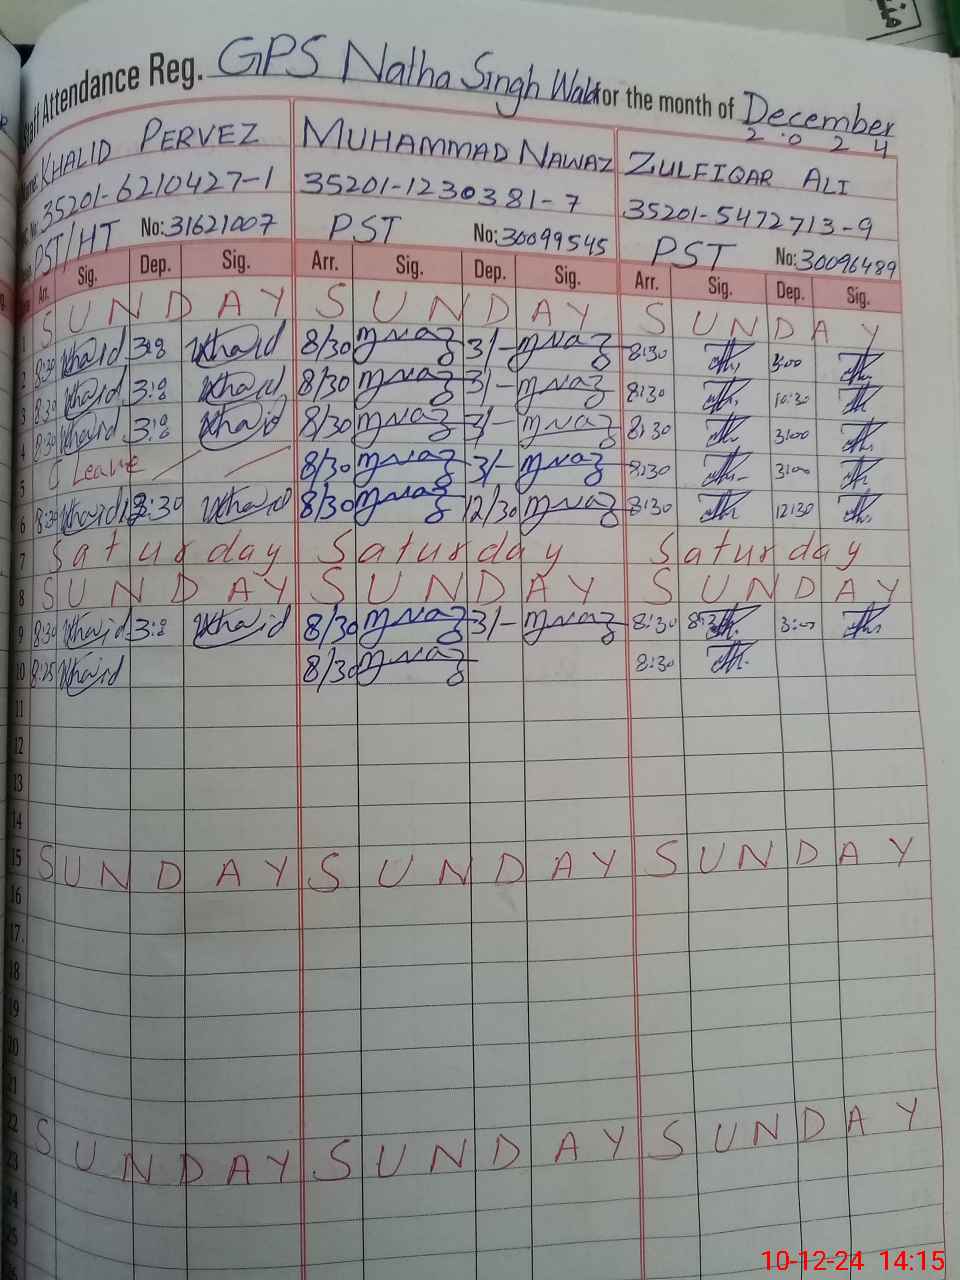 Staff Attendance Reg. GPS Natha Singh Wala for the month of December
2024
KHALID PERVEZ MUHAMMAD NAWAZ ZULFIQAR ALI
35201-6210427-1 35201-1230381-7 35201-5472713-9
PST/HT No: 31621007 PST No: 30099545 PST No: 30096489
Arr. Sig. Dep. Sig. Arr. Sig. Dep. Sig. Arr. Sig. Dep. Sig.
1 SUNDAY SUNDAY SUNDAY
2 8:30 Khalid Khalid 8/30 mnaz 3/- mnaz 8:30 3:00
3 8:30 Khalid Khalid 8/30 mnaz 3/- mnaz 8:30 10:30
4 8:30 Khalid Khalid 8/30 mnaz 3/- mnaz 8:30 3:00
5 Leave 8/30 mnaz 3/- mnaz 8:30 3:00
6 8:30 Khalid Khalid 8/30 mnaz 12/30 mnaz 8:30 12:30
7 Saturday Saturday Saturday
8 SUNDAY SUNDAY SUNDAY
9 8:30 Khalid Khalid 8/30 mnaz 3/- mnaz 8:30 3:00
10 8:25 Khalid 8/30 mnaz 8:30
11
12
13
14
15 SUNDAY SUNDAY SUNDAY
16
17
18
19
20
21
22 SUNDAY SUNDAY SUNDAY
23
24
25
10-12-24 14:15